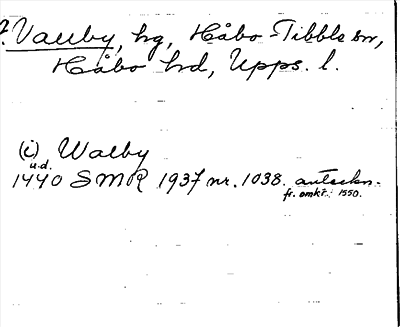 ?. Valby, hg, Håbo-Tibble sn,
Håbo hd, Upps. l.
(i) Walby
u.d.
1440 SMR 1937 nr. 1038. anteckn.
fr. omkr. 1550.